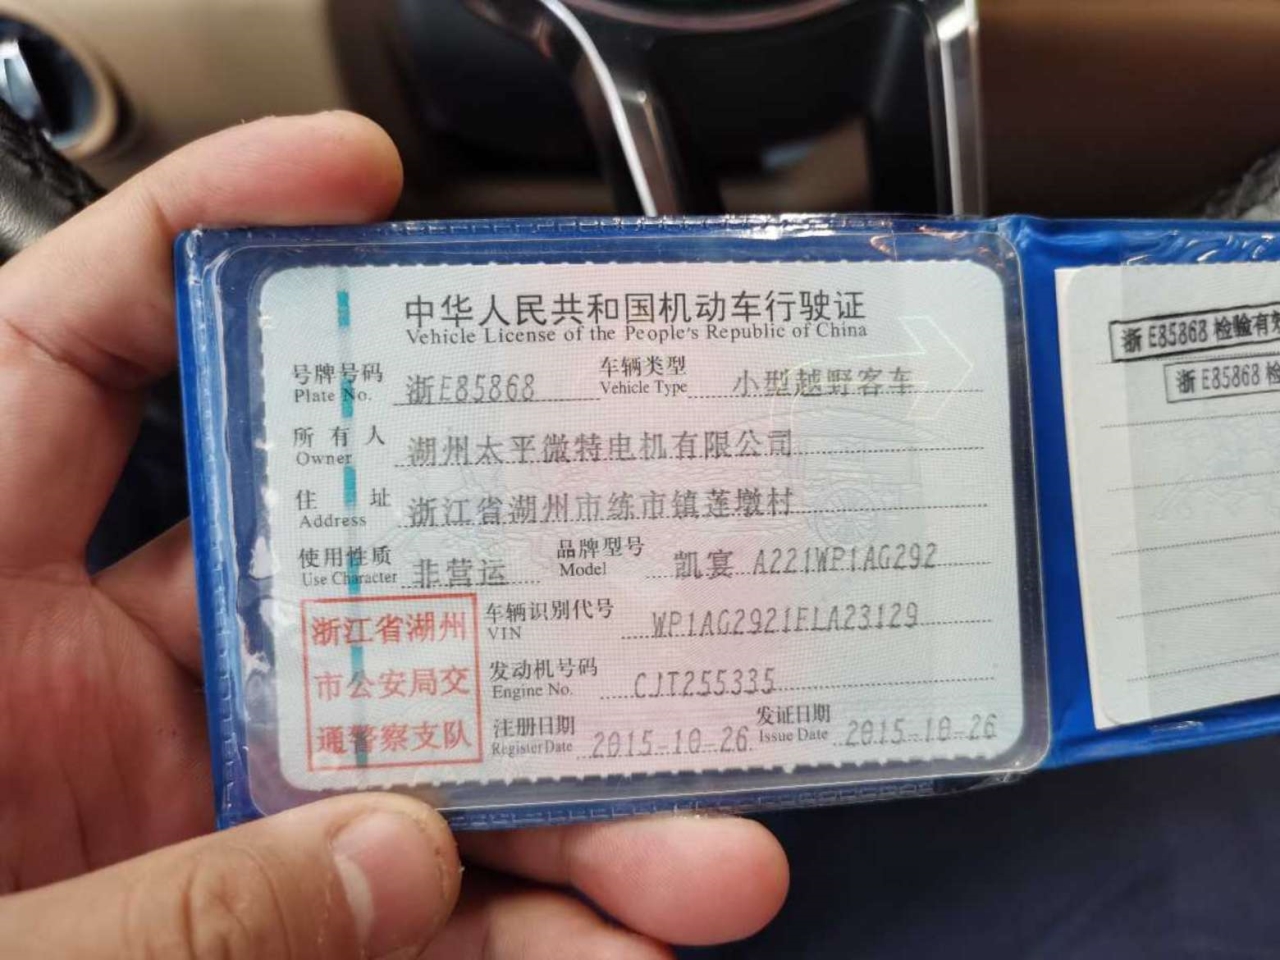 中华人民共和国机动车行驶证
Vehicle License of the People's Republic of China
号牌号码 浙E85868 车辆类型 小型越野客车
Plate No. Vehicle Type
所有人 湖州太平微特电机有限公司
Owner
住址 浙江省湖州市练市镇莲墩村
Address
使用性质 非营运 品牌型号 凯宴 A221WP1AG292
Use Character Model
浙江省湖州
市公安局交
通警察支队
车辆识别代号 WP1AG2921FLA23129
VIN
发动机号码 CJT255335
Engine No.
注册日期 2015-10-26 发证日期 2015-10-26
Register Date Issue Date
浙E85868 检验有
浙E85868 检